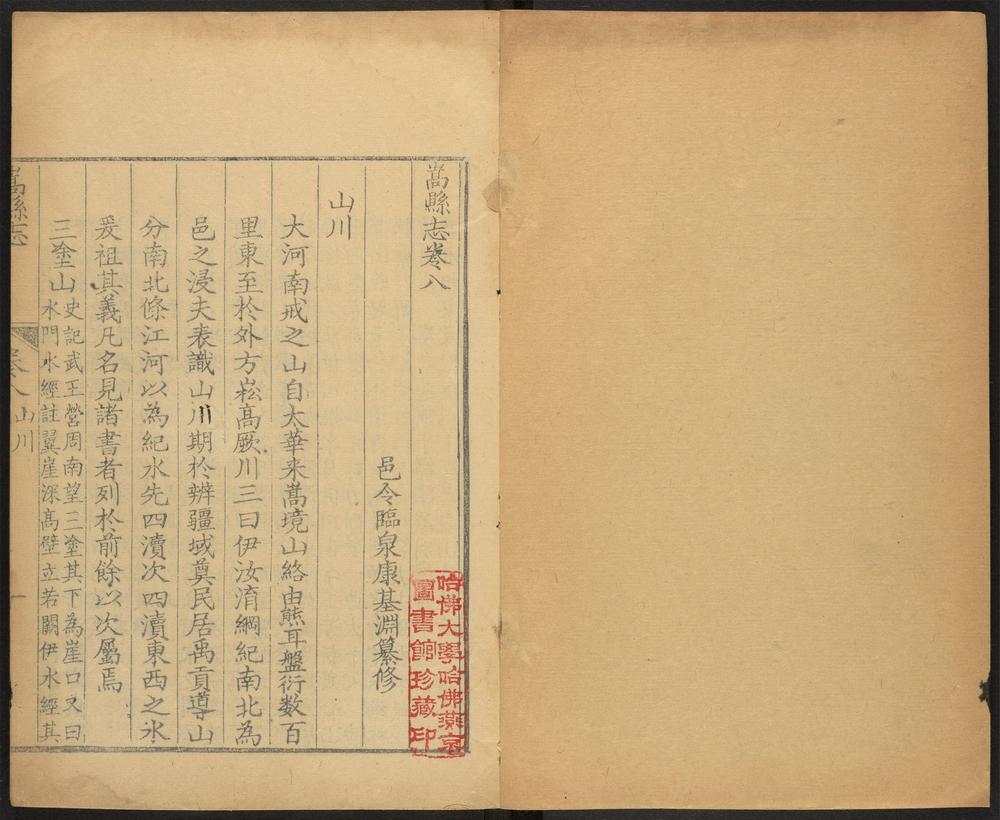 嵩縣志卷八
邑令臨泉康基淵纂修
山川
大河南戒之山自太華来嵩境山絡由熊耳盤衍数百
里東至於外方崧高厥川三曰伊汝淯綱紀南北為
邑之浸夫表識山川期於辨疆域奠民居禹貢導山
分南北條江河以為紀水先四瀆次四瀆東西之水
爰祖其義凡名見諸書者列於前餘以次屬焉
三塗山
史記武王營周南望三塗其下為崖口又曰
水門水經註翼崖深高壁立若闕伊水經其
嵩縣志
卷八山川
一
哈佛大學哈佛燕京
圖書館珍藏印